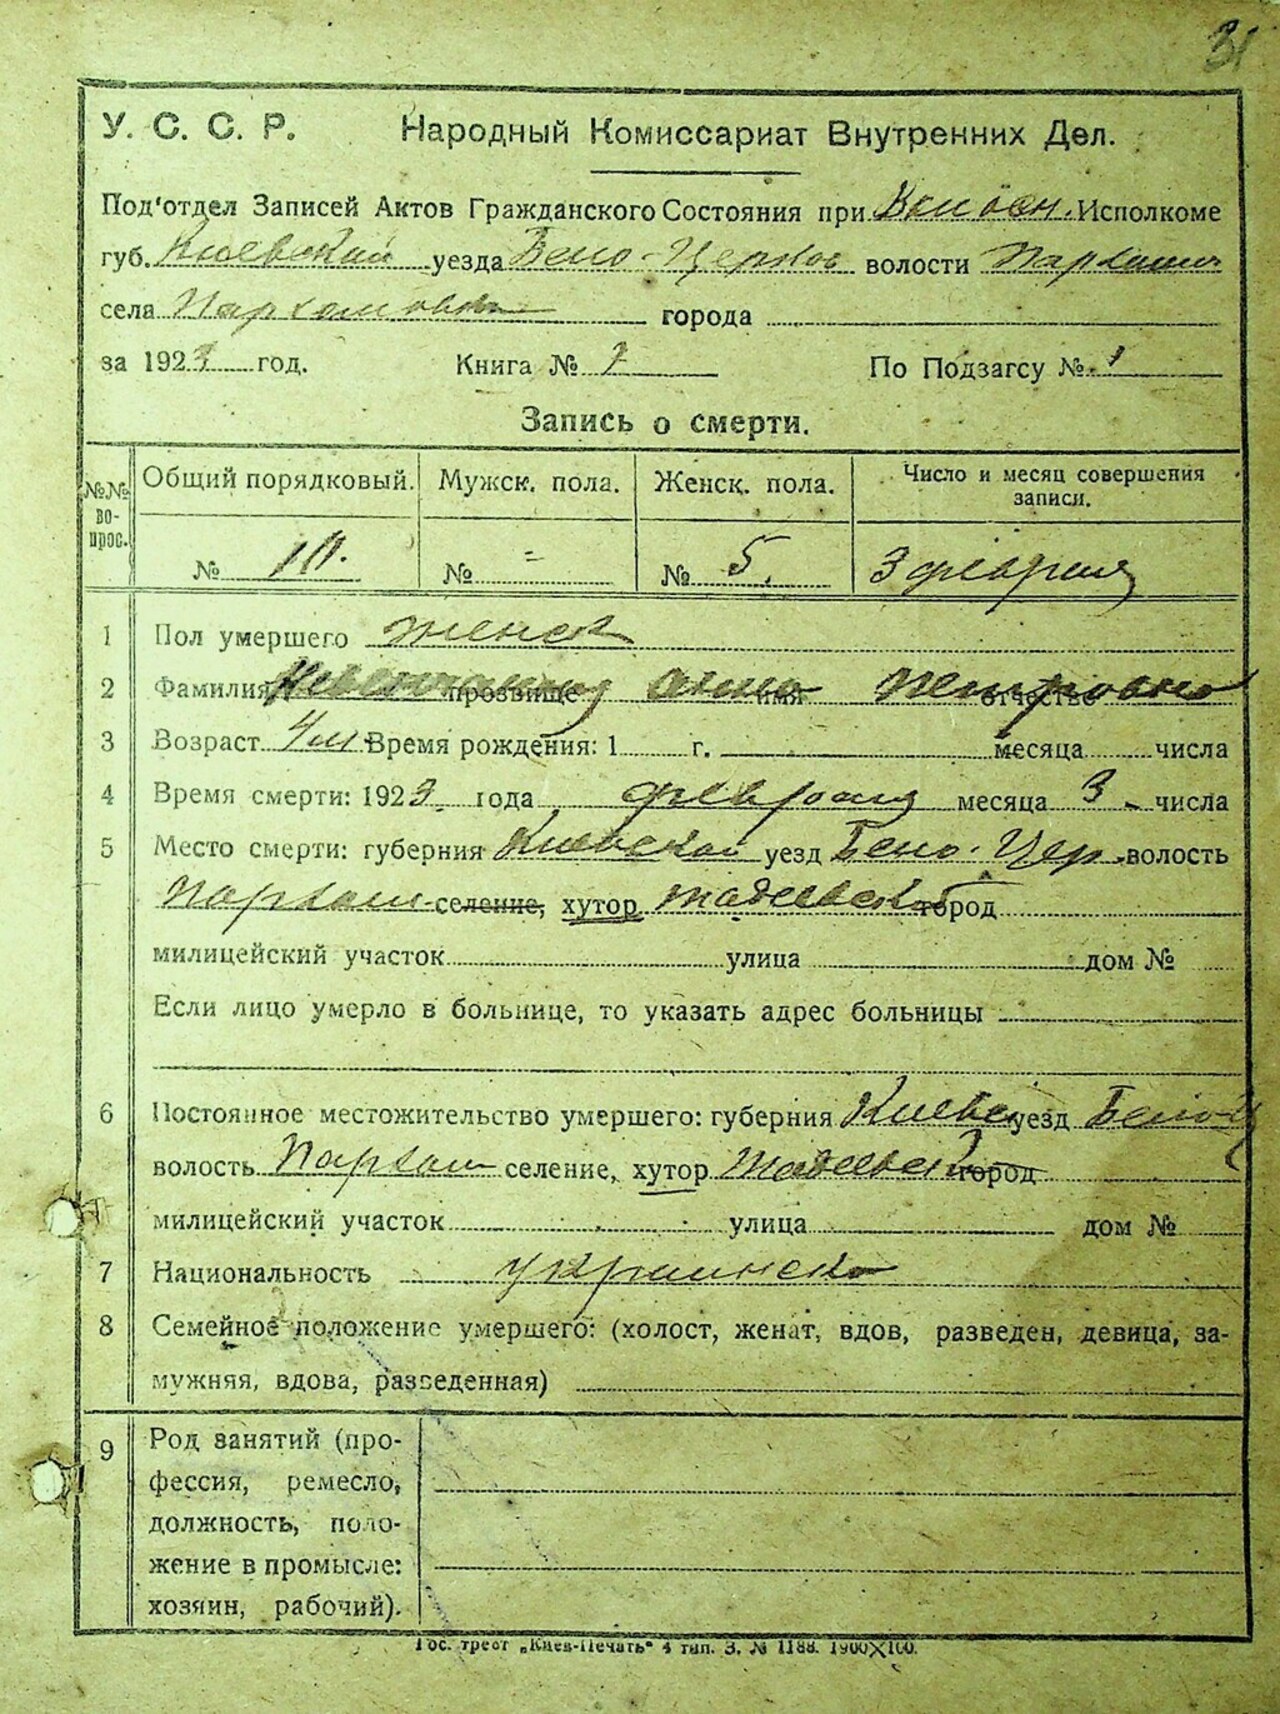 31
У. С. С. Р. Народный Комиссариат Внутренних Дел.
Под'отдел Записей Актов Гражданского Состояния при Исполкоме
губ. Киевской уезда Бело-Церков волости Пархом
села Пархомовка города
за 1923 год. Книга № По Подзагсу № 1
Запись о смерти.
№№ вопрос. Общий порядковый. Мужск. пола. Женск. пола. Число и месяц совершения записи.
№ 10. № = № 5. 3 февраля
1 Пол умершего женск
2 Фамилия прозвище Анна имя Петровна отчество
3 Возраст 4 м Время рождения: 1 г. месяца числа
4 Время смерти: 1923 года февраля месяца 3 числа
5 Место смерти: губерния Киевской уезд Бело-Цер. волость
Пархом селение, хутор город
милицейский участок улица дом №
Если лицо умерло в больнице, то указать адрес больницы
6 Постоянное местожительство умершего: губерния Киевск уезд Бело-Ц
волость Пархом селение, хутор город
милицейский участок улица дом №
7 Национальность украинска
8 Семейное положение умершего: (холост, женат, вдов, разведен, девица, за-
мужняя, вдова, разведенная)
9 Род занятий (про-
фессия, ремесло,
должность, поло-
жение в промысле:
хозяин, рабочий).
Гос. трест „Киев-Печать" 4 тип. З. № 1188. 1900X100.